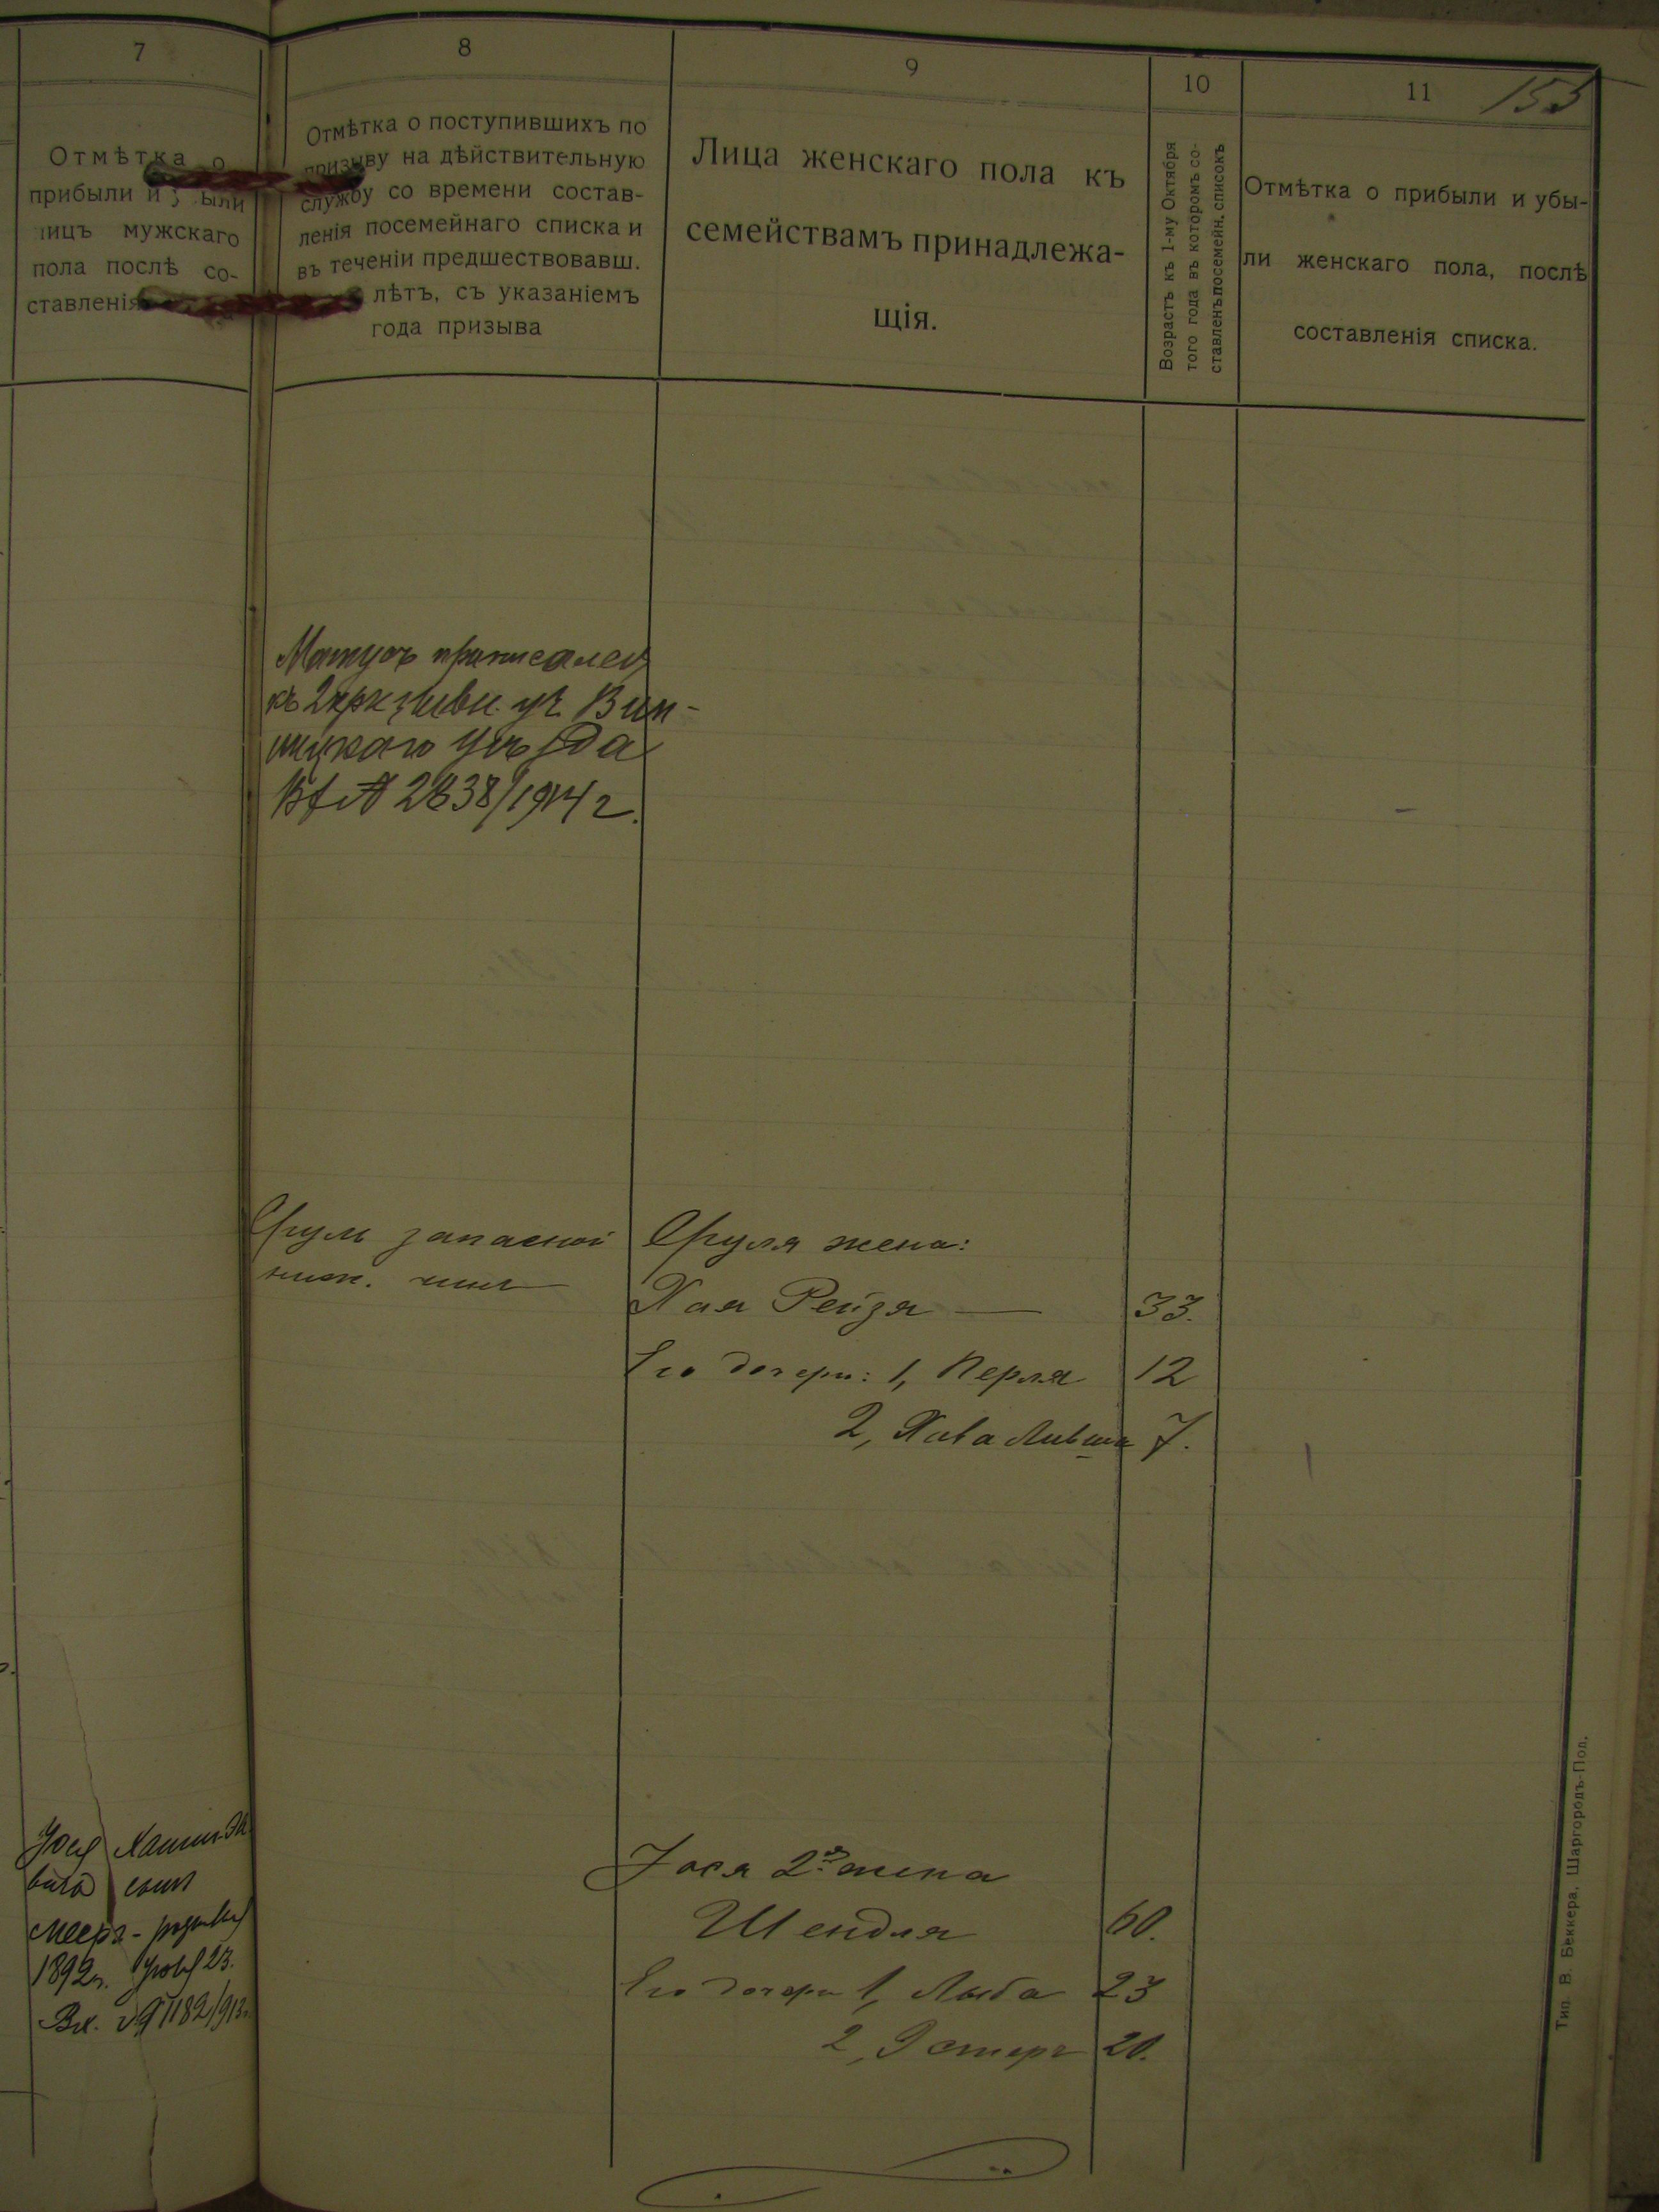 7
8
9
10
11
153
Отмѣтка о
прибыли и ыли
лицъ мужскаго
пола послѣ со-
ставленія
Отмѣтка о поступившихъ по
призыву на дѣйствительную
службу со времени состав-
ленія посемейнаго списка и
въ теченіи предшествовавш.
лѣтъ, съ указаніемъ
года призыва
Лица женскаго пола къ
семействамъ принадлежа-
щія.
Возрастъ къ 1-му Октября
того года въ которомъ со-
ставленъ посемейн. списокъ
Отмѣтка о прибыли и убы-
ли женскаго пола, послѣ
составленія списка.
приписался
къ 2 призывн. уч. Вин-
ницкаго уѣзда
2838/1914 г.
Сруль запасной
нижн. чинъ
Сруля жена:
Хая Рейзя — 33.
Его дочери: 1, Перля 12
2, Хава 7.
Іося 2я жена
Шендля 60.
Его дочери 1, Лыба 23
2, Эстеръ 20.
сынъ
Мееръ -
1892 г. 23.
Вх. № 1182/913 г.
Тип. В. Беккера, Шаргородъ-Под.